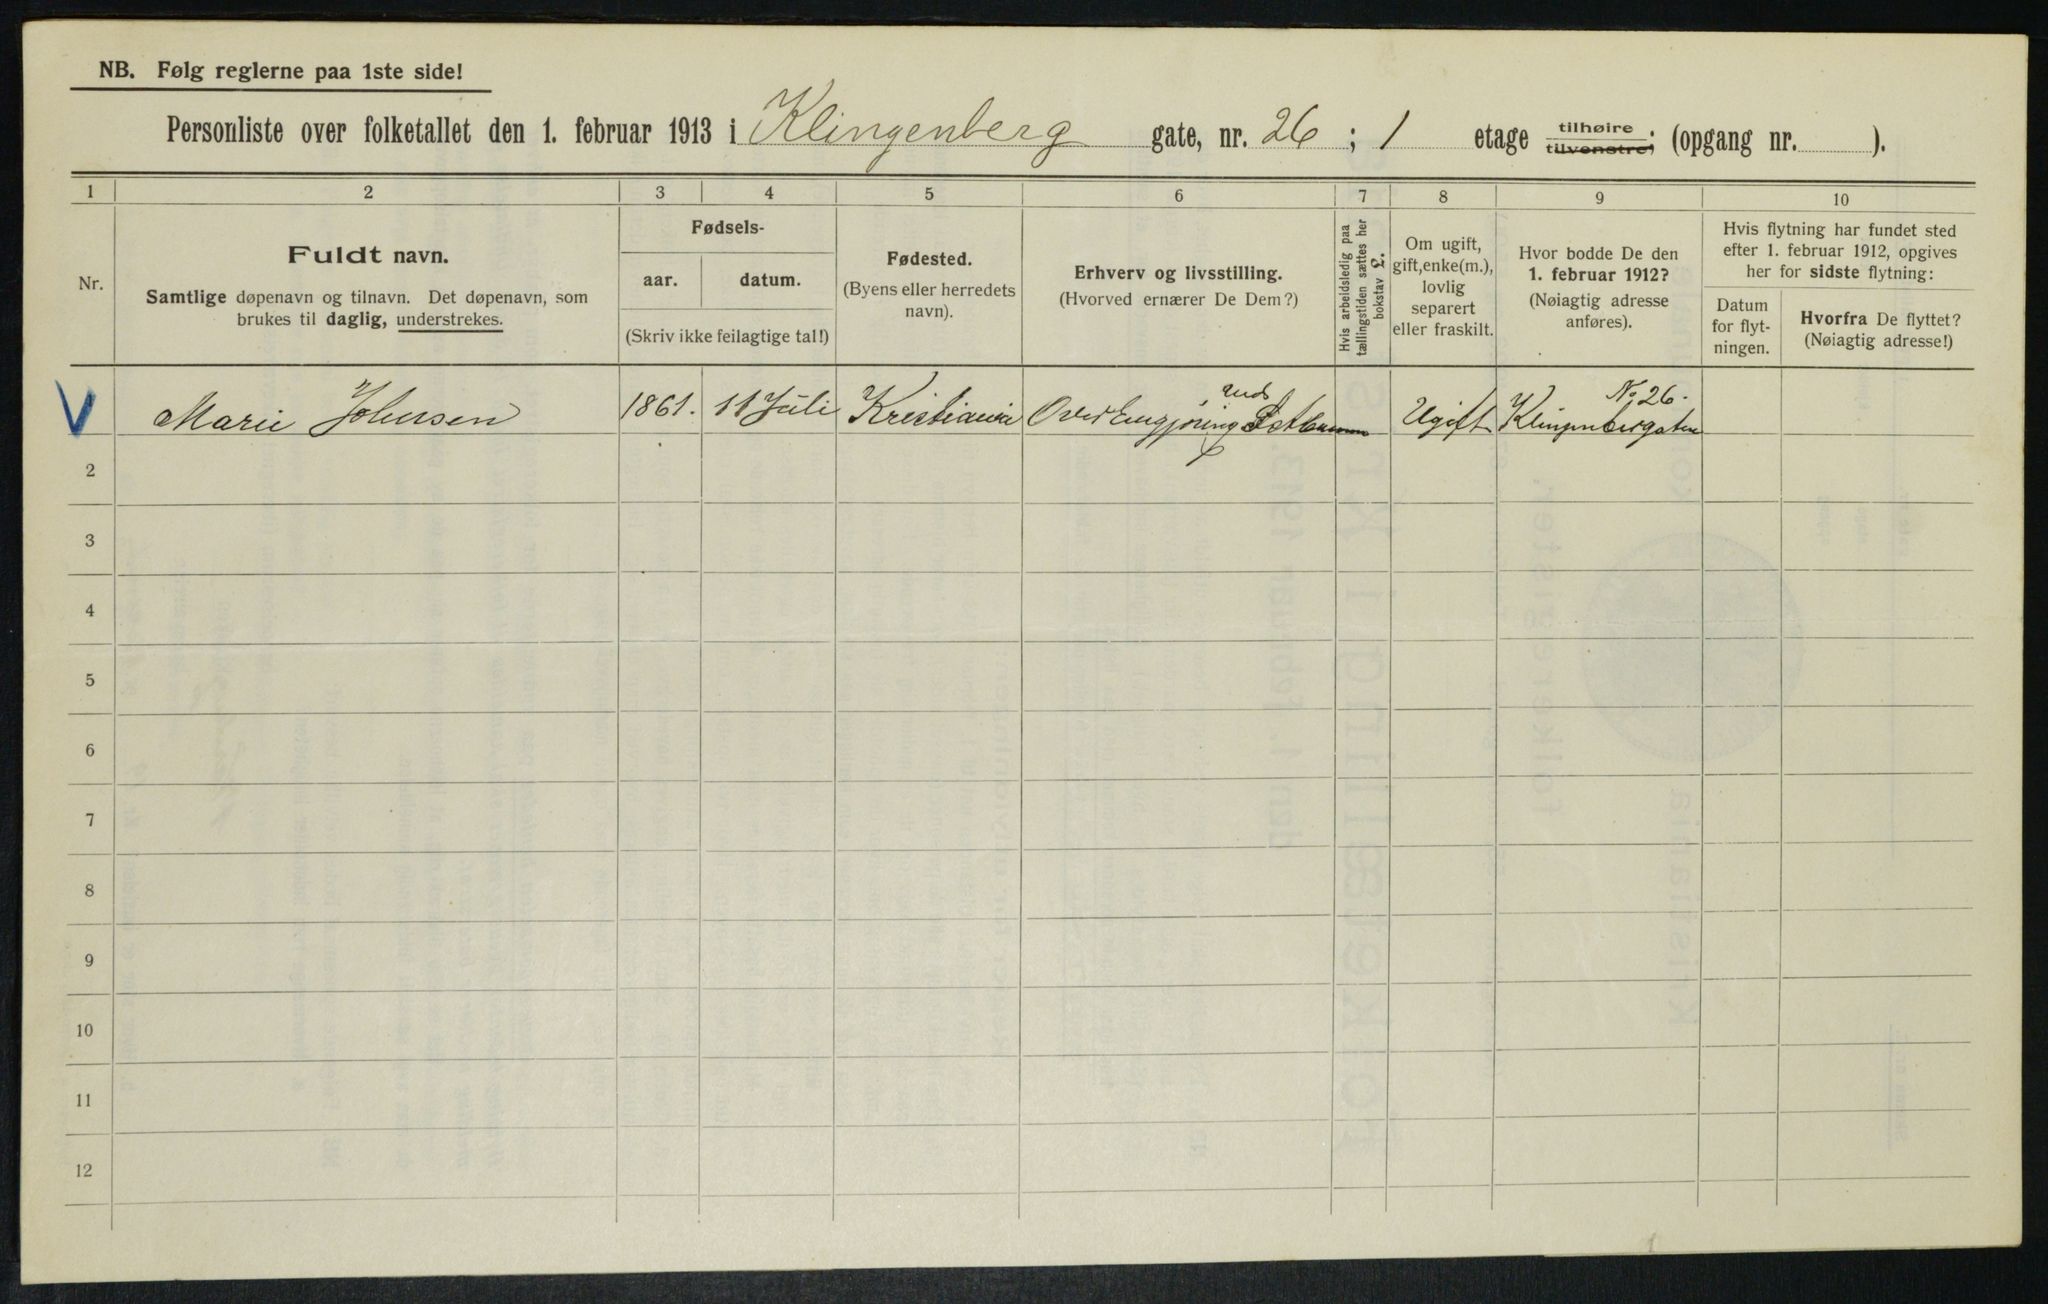 NB. Følg reglerne paa 1ste side!
Personliste over folketallet den 1. februar 1913 i Klingenberg gate, nr. 26 ; 1 etage tilhøire tilvenstre; (opgang nr. ).
1 2 3 4 5 6 7 8 9 10
Nr.
Fuldt navn.
Samtlige døpenavn og tilnavn. Det døpenavn, som
brukes til daglig, understrekes.
Fødsels-
aar. datum.
(Skriv ikke feilagtige tal!)
Fødested.
(Byens eller herredets
navn).
Erhverv og livsstilling.
(Hvorved ernærer De Dem?)
Hvis arbeidsledig paa
tællingstiden sættes her
bokstav L.
Om ugift,
gift, enke(m.),
lovlig
separert
eller fraskilt.
Hvor bodde De den
1. februar 1912?
(Nøiagtig adresse
anføres).
Hvis flytning har fundet sted
efter 1. februar 1912, opgives
her for sidste flytning:
Datum
for flyt-
ningen.
Hvorfra De flyttet?
(Nøiagtig adresse!)
Marie Johnsen 1861. 11 Juli Kristiania Ugift Klingenbergaten No 26.
2
3
4
5
6
7
8
9
10
11
12